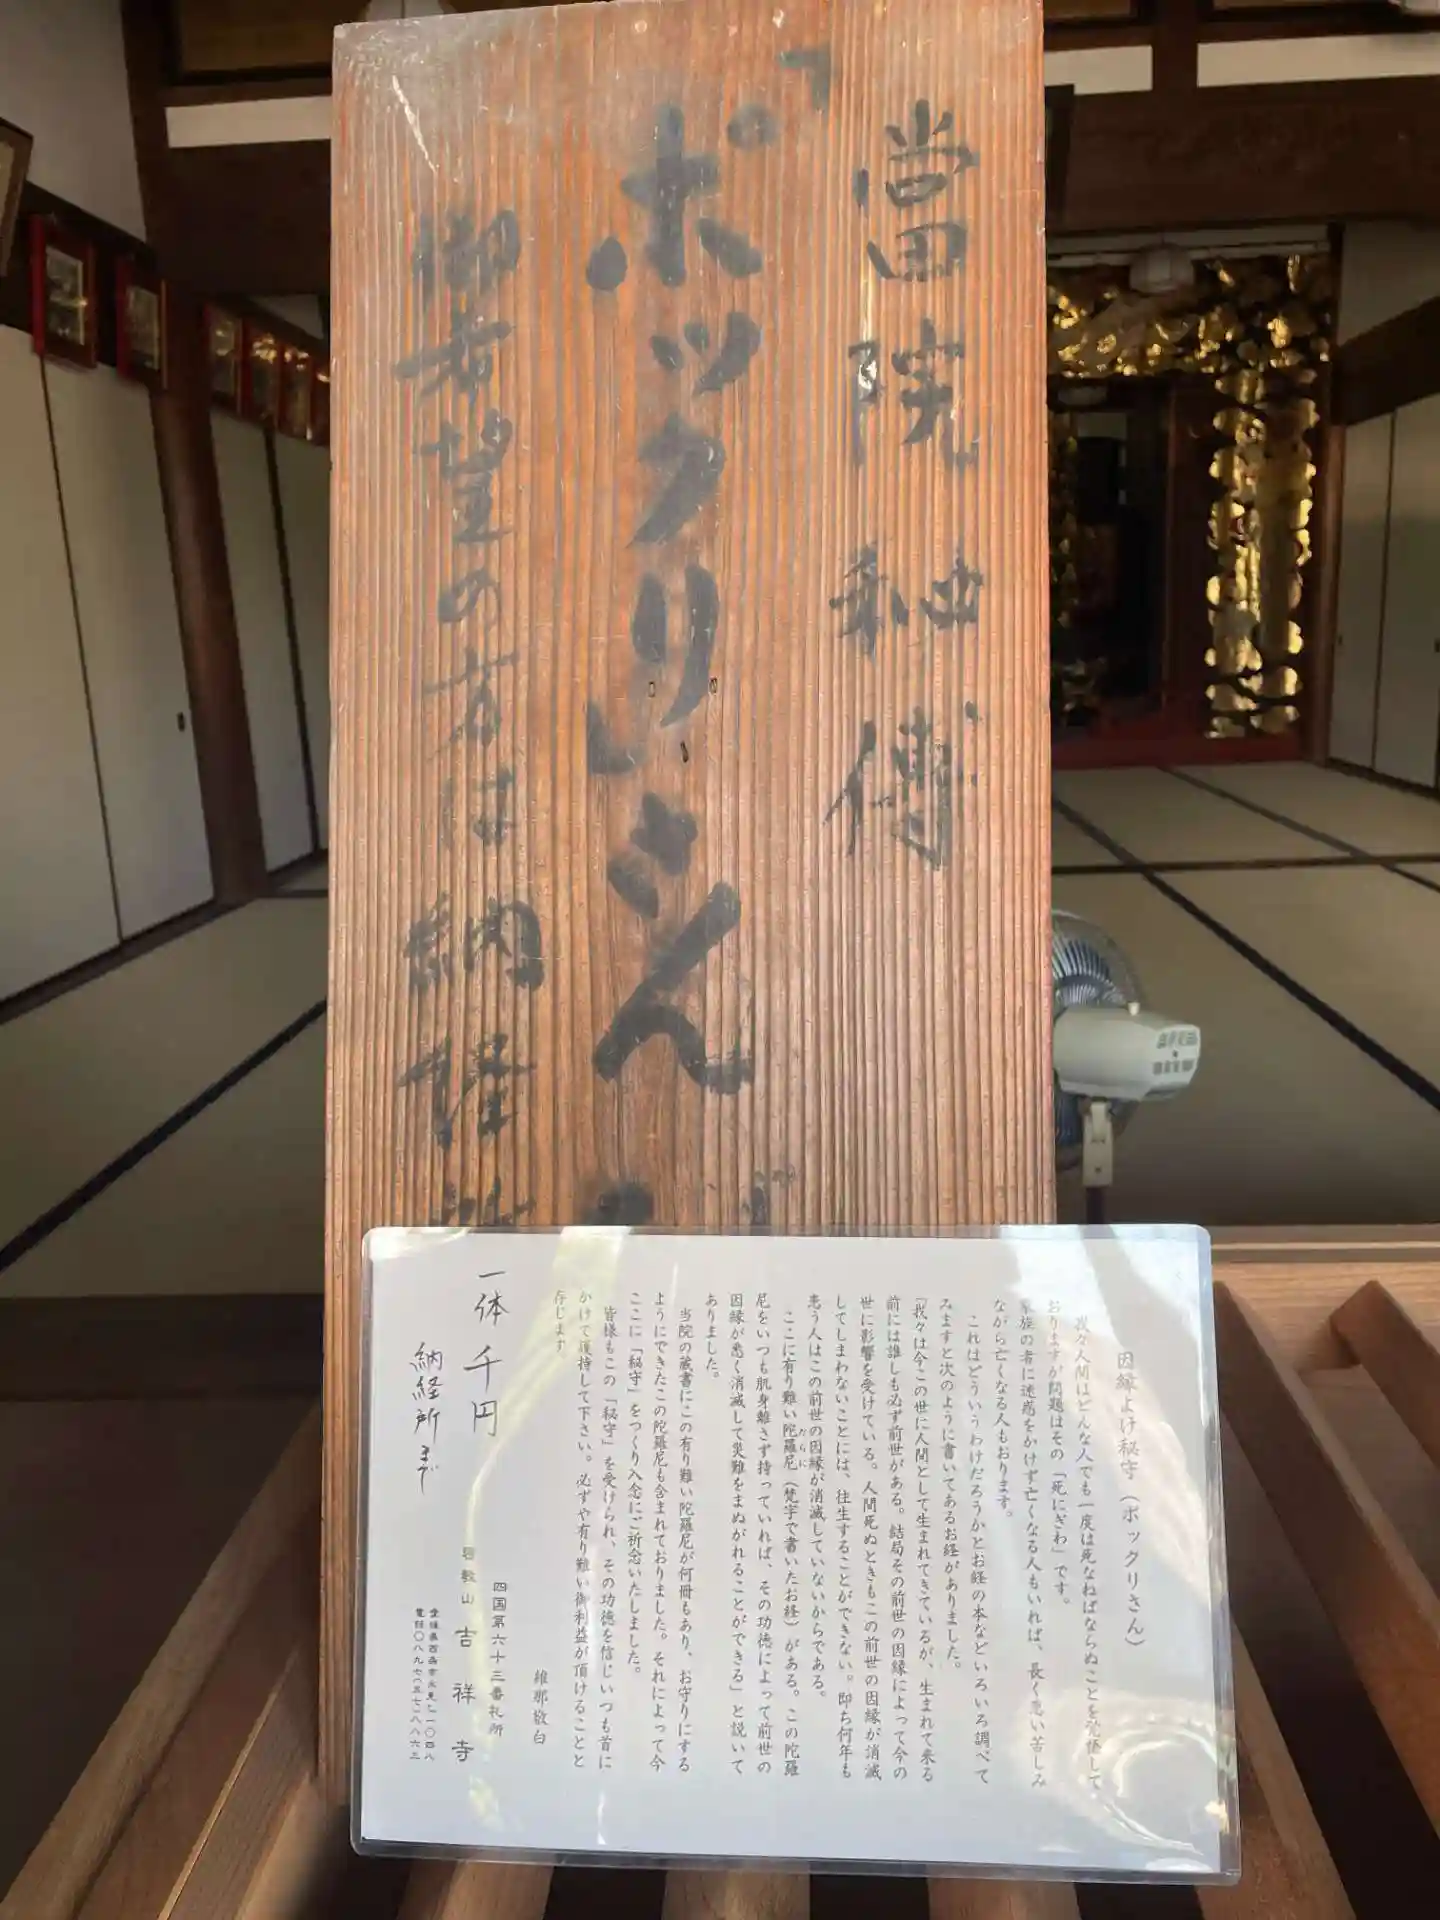 當院秘傳
「ポックリさん」
御希望の方は納経
因縁よけ秘守（ポックリさん）
我々人間はどんな人でも一度は死なねばならぬことを覚悟して
おりますが問題はその「死にぎわ」です。
家族の者に迷惑をかけず亡くなる人もいれば、長く患い苦しみ
ながら亡くなる人もおります。
これはどういうわけだろうかとお経の本などいろいろ調べて
みますと次のように書いてあるお経がありました。
「我々は今この世に人間として生まれてきているが、生まれて来る
前には誰しも必ず前世がある。結局その前世の因縁によって今の
世に影響を受けている。人間死ぬときもこの前世の因縁が消滅
してしまわないことには、往生することができない。即ち何年も
患う人はこの前世の因縁が消滅していないからである。
ここに有り難い陀羅尼（梵字で書いたお経）がある。この陀羅
だらに
尼をいつも肌身離さず持っていれば、その功徳によって前世の
因縁が悉く消滅して災難をまぬがれることができる」と説いて
ありました。
当院の蔵書にこの有り難い陀羅尼が何冊もあり、お守りにする
ようにできたこの陀羅尼も含まれておりました。それによって今
ここに「秘守」をつくり入念にご祈念いたしました。
皆様もこの「秘守」を受けられ、その功徳を信じいつも首に
かけて護持して下さい。必ずや有り難い御利益が頂けることと
存じます
維那敬白
一体 千円
四国第六十三番札所
密教山 吉祥寺
納経所まで
愛媛県西条市氷見乙一〇四八
電話〇八九七(五七)八八六三